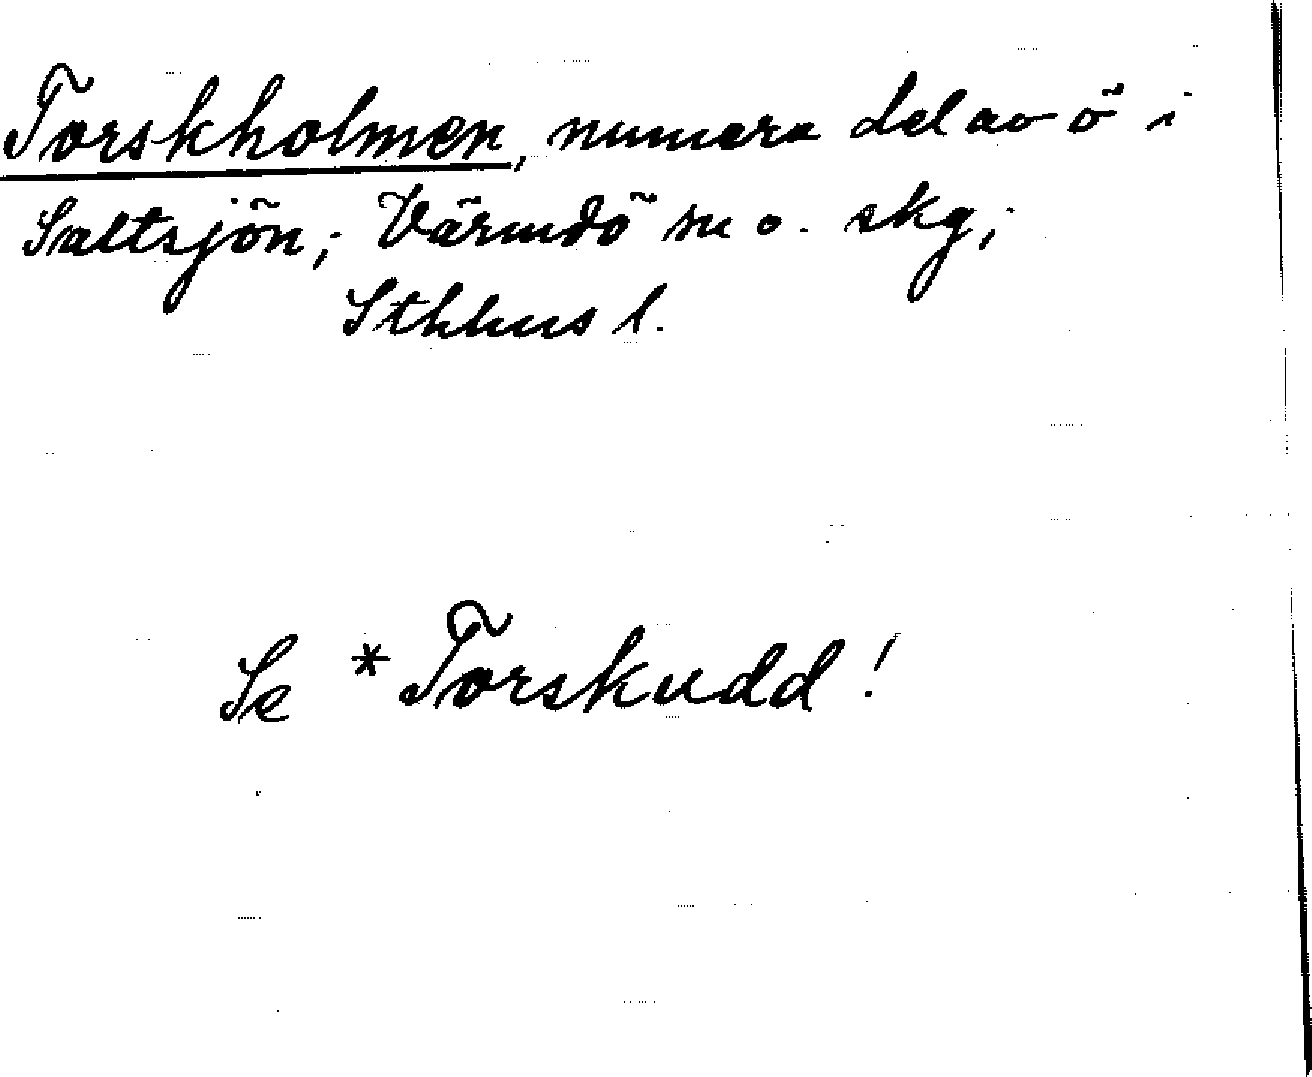 Torskholmen, numera del av ö i
Saltsjön; Värmdö sn o. skg;
Sthlms l.
Se *Torskudd!